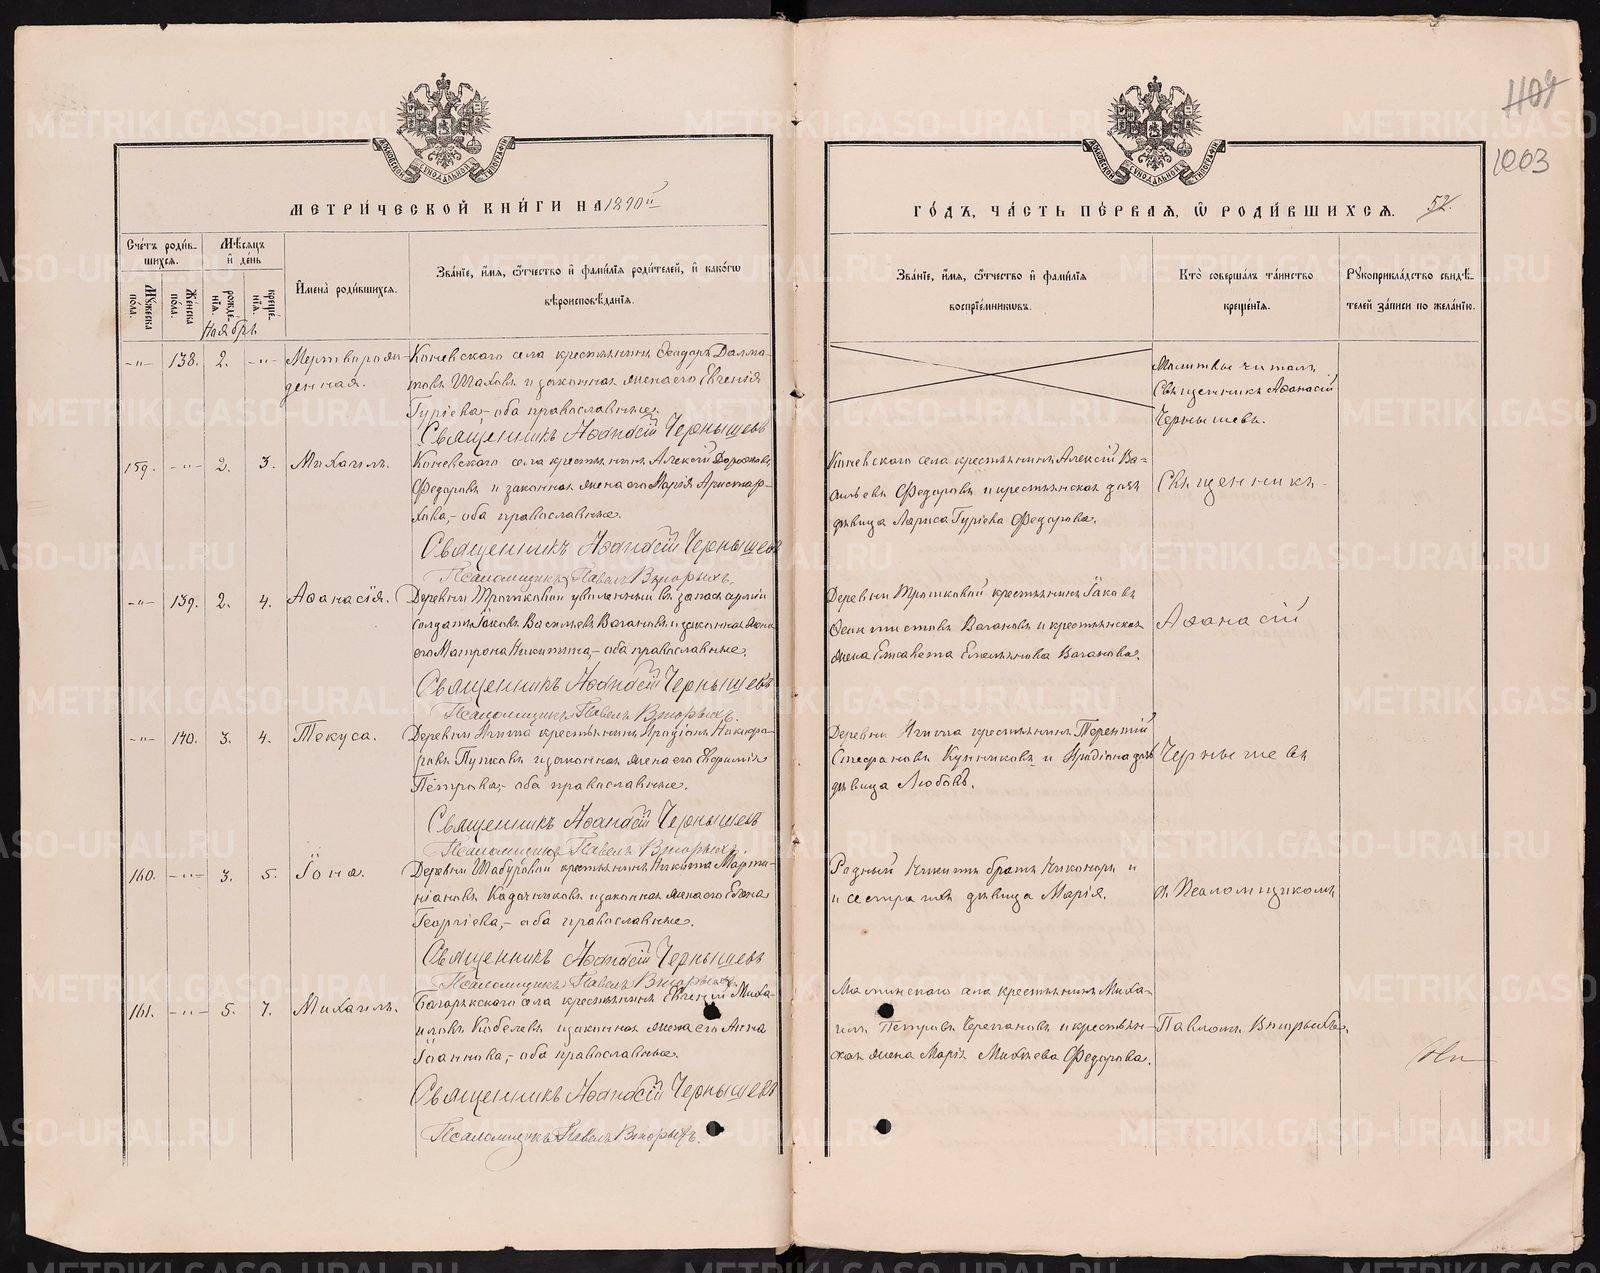 1109
1003
МЕТРИ́ЧЕСКОЙ КНИ́ГИ НА 1890й
ГО́ДЪ, ЧА́СТЬ ПЕ́РВАЯ, Ѿ РОДИ́ВШИХСѦ. 52.
Сче́тъ роди́вшихсѧ.
Мѣ́сѧцъ и҆ де́нь
И҆мена̀ роди́вшихсѧ.
Зва́нїе, и҆́мѧ, ѻ҆́тчество и҆ фами́лїѧ роди́телей, и҆ како́гѡ
вѣроисповѣ́данїѧ.
Зва́нїе, и҆́мѧ, ѻ҆́тчество и҆ фами́лїѧ
воспрїе́мникѡвъ.
Кто̀ соверша́лъ та́инство
креще́нїѧ.
Рꙋкоприкла́дство свидѣ́телей за́писи по жела́нїю.
Мꙋ́жеска по́ла.
Же́нска по́ла.
рожде́нїѧ.
креще́нїѧ.
Ноябрь
-„- 138. 2. -„- Мертворож-
денная.
Коневскаго села крестьянинъ Ѳеодоръ Далма-
товъ Шаховъ и законная жена его Евгенія
Гуріева,- оба православные.
Священникъ Аѳанасій Чернышевъ
Молитвы читалъ
Священникъ Аѳанасій
Чернышевъ.
159. -„- 2. 3. Михаилъ.
Коневскаго села крестьянинъ Алексій
Ѳедоровъ и законная жена его Марія Аристар-
хова,- оба православные.
Священникъ Аѳанасій Чернышевъ
Псаломщикъ Павелъ Вторыхъ.
Коневскаго села крестьянинъ Алексій Ва-
сильевъ Ѳедоровъ и крестьянская дочь
дѣвица Лариса Гуріева Ѳедорова.
Священникъ
-„- 139. 2. 4. Аѳанасія.
Деревни Трошковой уволенный въ запасъ арміи
солдатъ Іаковъ Васильевъ Вагановъ и законная жена
его Матрона Никитина,- оба православные.
Священникъ Аѳанасій Чернышевъ
Псаломщикъ Павелъ Вторыхъ.
Деревни Трошковой крестьянинъ Іаковъ
Вагановъ и крестьянская
жена Елисавета Емельянова Ваганова.
Аѳанасій
-„- 140. 3. 4. Текуса.
Деревни крестьянинъ Иродіонъ Никифо-
ровъ Пупковъ и законная жена его Евфимія
Петрова,- оба православные.
Священникъ Аѳанасій Чернышевъ
Псаломщикъ Павелъ Вторыхъ.
Деревни крестьянинъ Терентій
Стефановъ и Иродіона дочь
дѣвица Любовь.
Чернышевъ
160. -„- 3. 5. Іона.
Деревни Шабуровой крестьянинъ Никита Марти-
ніановъ Кадочниковъ и законная жена его
Георгіева,- оба православные.
Священникъ Аѳанасій Чернышевъ
Псаломщикъ Павелъ Вторыхъ.
Родный Никиты братъ Никаноръ и
и сестра ихъ дѣвица Марія.
съ Псаломщикомъ
161. -„- 5. 7. Михаилъ.
Багарякского села крестьянинъ Евгеній Миха-
иловъ Кобелевъ и законная жена его Анна
Іоаннова,- оба православные.
Священникъ Аѳанасій Чернышевъ
Псаломщикъ Павелъ Вторыхъ.
села крестьянинъ Миха-
илъ Петровъ Черепановъ и крестьян-
ская жена Марія Михѣева Ѳедорова.
Павломъ Вторыхъ.